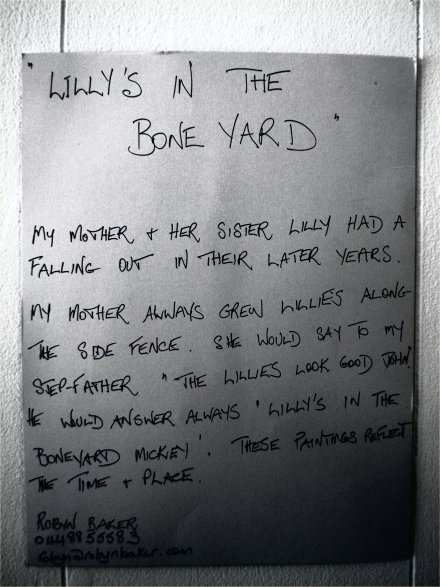 "LILLY'S IN THE
BONE YARD"
MY MOTHER + HER SISTER LILLY HAD A
FALLING OUT IN THEIR LATER YEARS.
MY MOTHER ALWAYS GREW LILLIES ALONG
THE SIDE FENCE. SHE WOULD SAY TO MY
STEP-FATHER "THE LILLIES LOOK GOOD JOHN'.
HE WOULD ANSWER ALWAYS 'LILLY'S IN THE
BONEYARD MICKEY'. THESE PAINTINGS REFLECT
THE TIME + PLACE.
ROBYN BAKER
0448855583
robyn@robynbaker.com